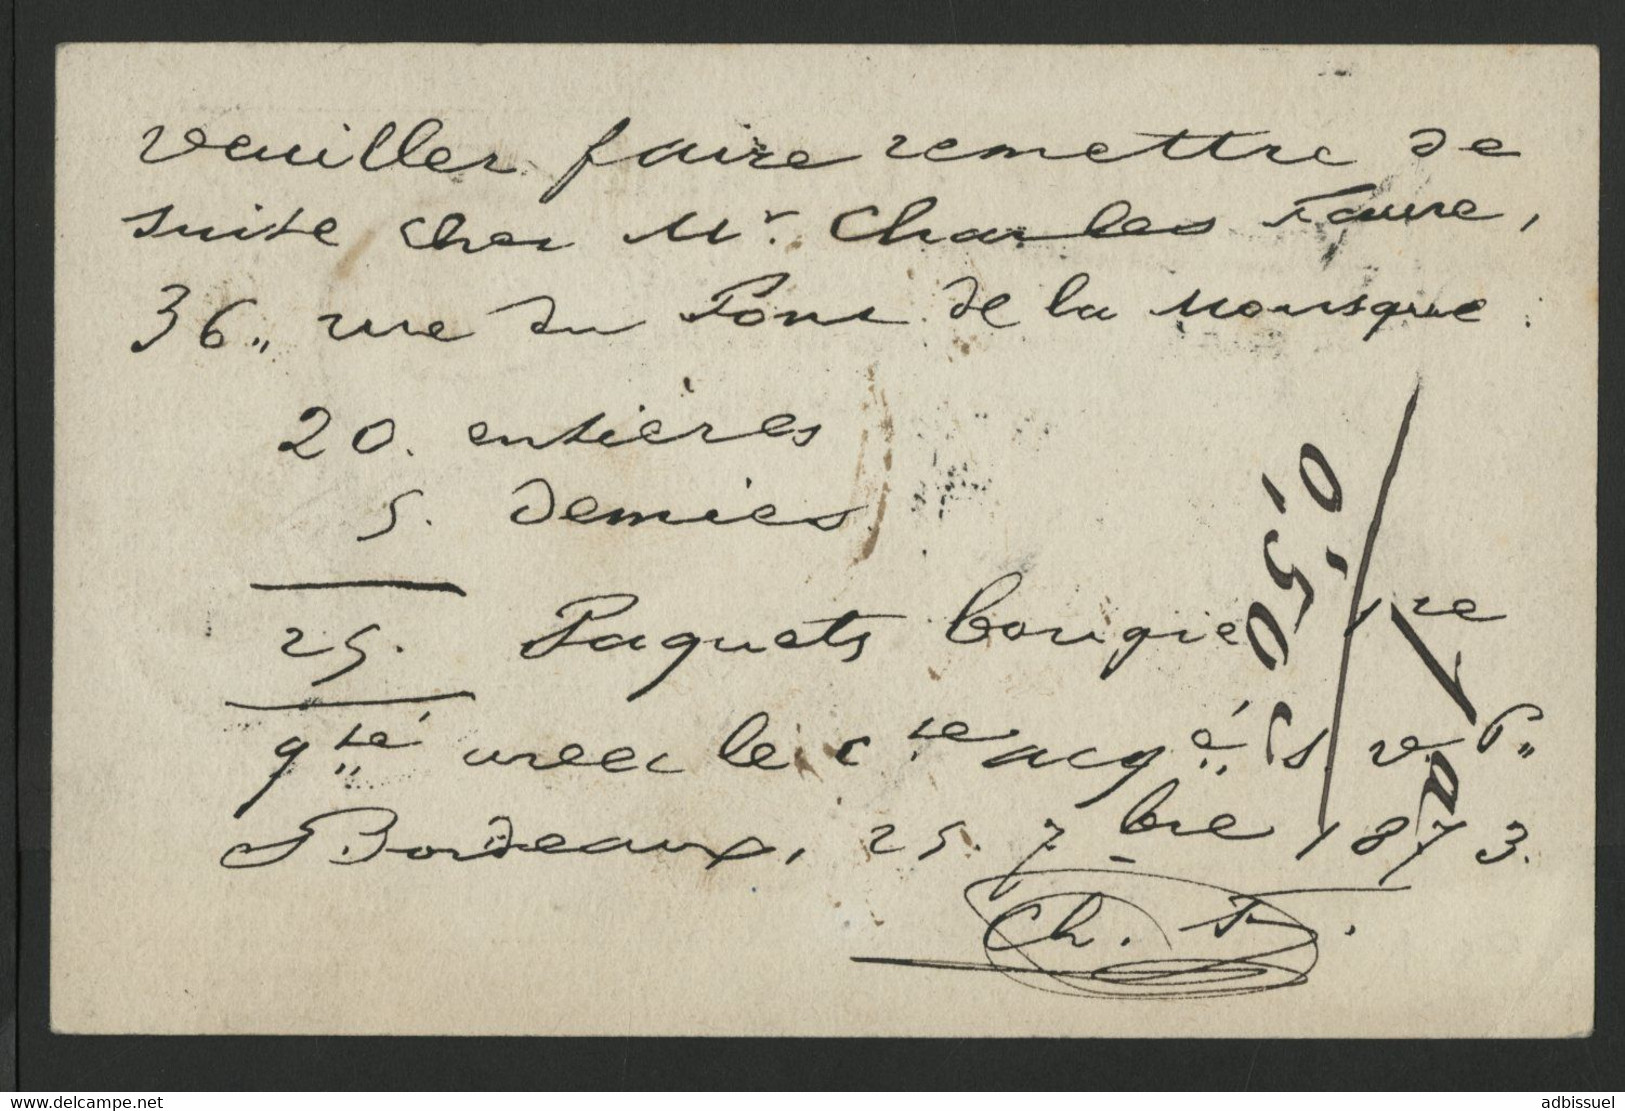 veuiller faire remettre de
suite chez Mr. Charles Faure,
36,, rue du Pont de la Mousque.
20. entières
5. demies
25. Paquets bougie 1re
qté avec le cte acqé
Bordeaux, 25. 7bre 1873.
Ch. F.
0,50
delcampe.net
adbissuel